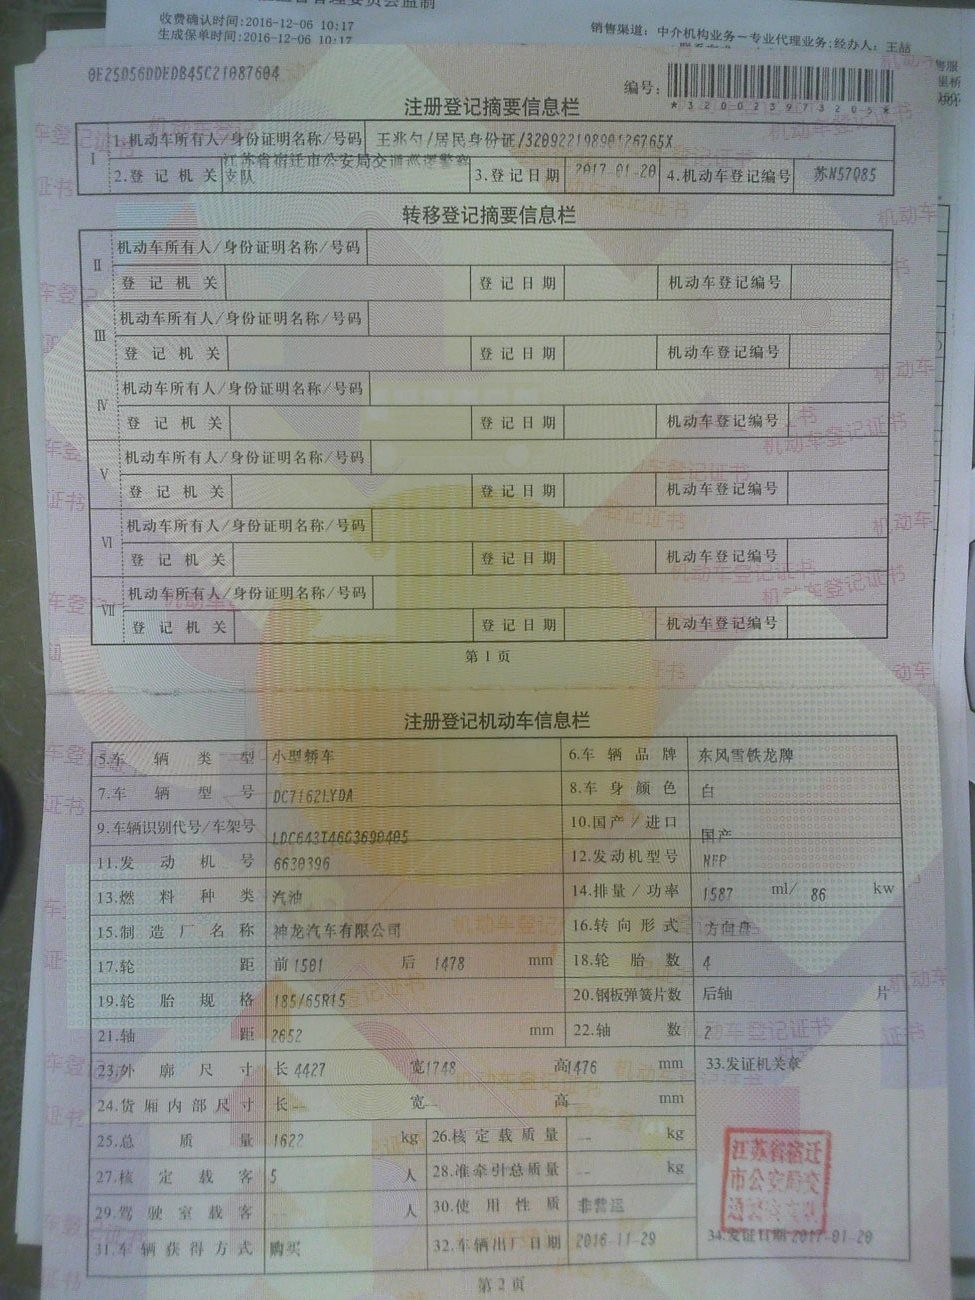 收费确认时间:2016-12-06 10:17
生成保单时间:2016-12-06 10:17
销售渠道: 中介机构业务-专业代理业务;经办人: 王喆
0E25D56DDEDB45C21087604
编号:
*320023973205*
注册登记摘要信息栏
I 1.机动车所有人/身份证明名称/号码 王兆勺/居民身份证/32092219890126765X
2.登记机关 江苏省宿迁市公安局交通巡逻警察支队 3.登记日期 2017-01-20 4.机动车登记编号 苏N57Q85
转移登记摘要信息栏
II 机动车所有人/身份证明名称/号码
登记机关 登记日期 机动车登记编号
III 机动车所有人/身份证明名称/号码
登记机关 登记日期 机动车登记编号
IV 机动车所有人/身份证明名称/号码
登记机关 登记日期 机动车登记编号
V 机动车所有人/身份证明名称/号码
登记机关 登记日期 机动车登记编号
VI 机动车所有人/身份证明名称/号码
登记机关 登记日期 机动车登记编号
VII 机动车所有人/身份证明名称/号码
登记机关 登记日期 机动车登记编号
第1页
注册登记机动车信息栏
5.车辆类型 小型轿车 6.车辆品牌 东风雪铁龙牌
7.车辆型号 DC7162LYDA 8.车身颜色 白
9.车辆识别代号/车架号 LDC643T46G3690405 10.国产/进口 国产
11.发动机号 6630396 12.发动机型号 NFP
13.燃料种类 汽油 14.排量/功率 1587 ml/ 86 kw
15.制造厂名称 神龙汽车有限公司 16.转向形式 方向盘
17.轮距 前1501 后 1478 mm 18.轮胎数 4
19.轮胎规格 185/65R15 20.钢板弹簧片数 后轴 片
21.轴距 2652 mm 22.轴数 2
23.外廓尺寸 长 4427 宽1748 高1476 mm 33.发证机关章
24.货厢内部尺寸 长-- 宽-- 高-- mm
25.总质量 1622 kg 26.核定载质量 -- kg
27.核定载客 5 人 28.准牵引总质量 -- kg
29.驾驶室载客 -- 人 30.使用性质 非营运
31.车辆获得方式 购买 32.车辆出厂日期 2016-11-29 34.发证日期 2017-01-20
江苏省宿迁
市公安局交
第2页